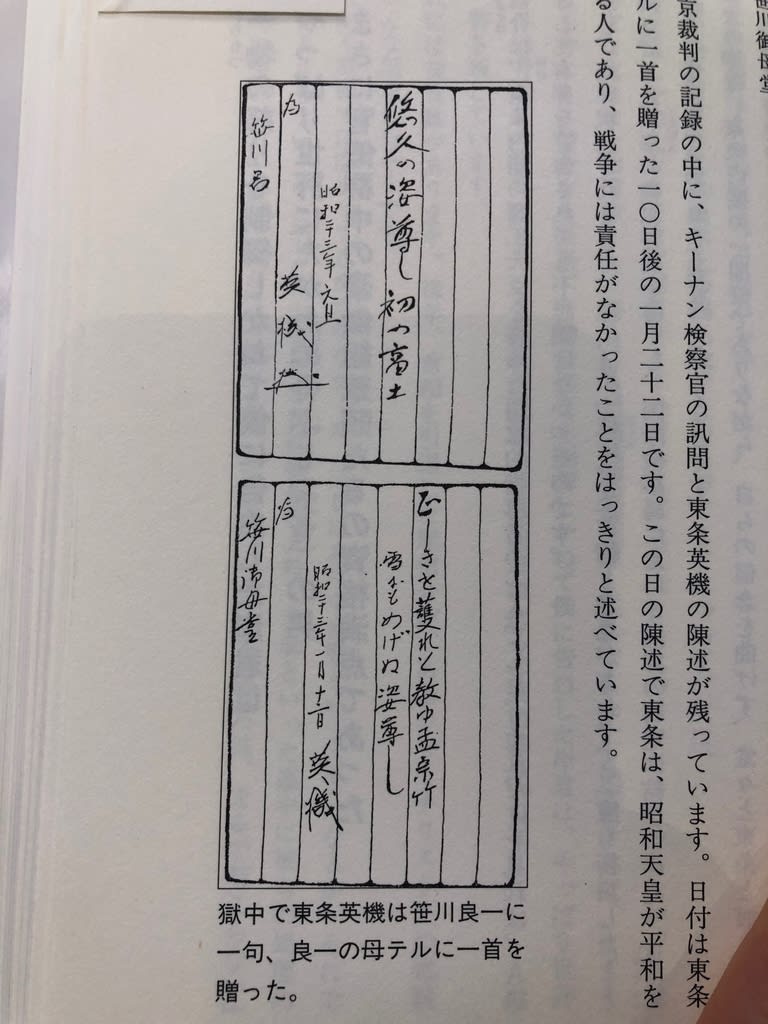 笹川御母堂
京裁判の記録の中に、キーナン検察官の訊問と東条英機の陳述が残っています。日付は東条
ルに一首を贈った一〇日後の一月二十二日です。この日の陳述で東条は、昭和天皇が平和を
る人であり、戦争には責任がなかったことをはっきりと述べています。
悠久の姿尊し初の富士
昭和二十三年元旦
英機
為
笹川君
正しきを護れと教ゆ孟宗竹
雪おもめげぬ姿尊し
昭和二十三年一月十二日 英機
為
笹川御母堂
獄中で東条英機は笹川良一に
一句、良一の母テルに一首を
贈った。